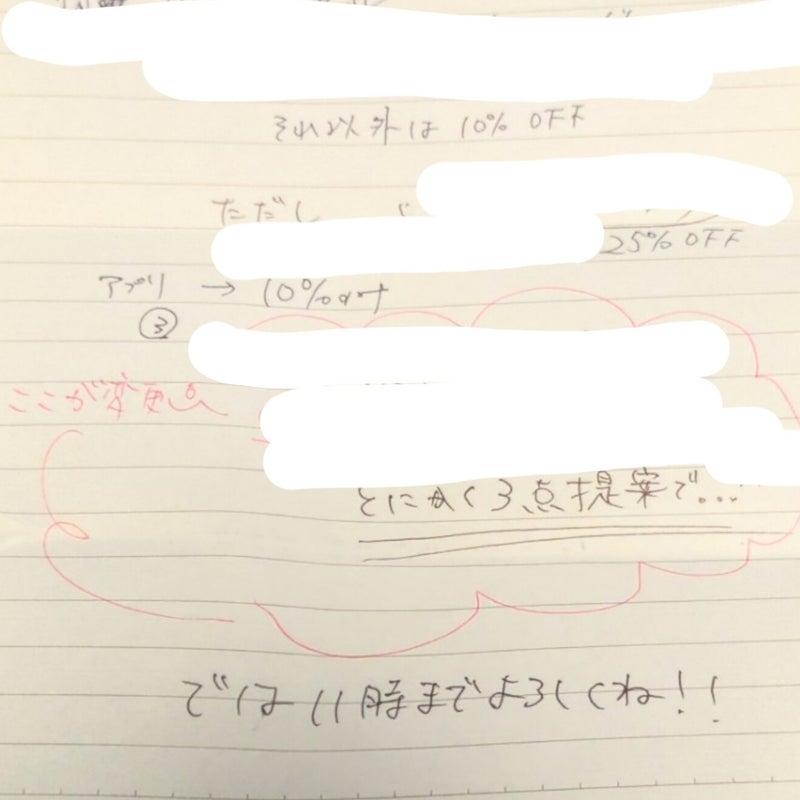 それ以外は 10% OFF
ただし
25% OFF
アプリ → 10%off
③
ここが変更点
とにかく3点提案で...
では11時までよろしくね!!